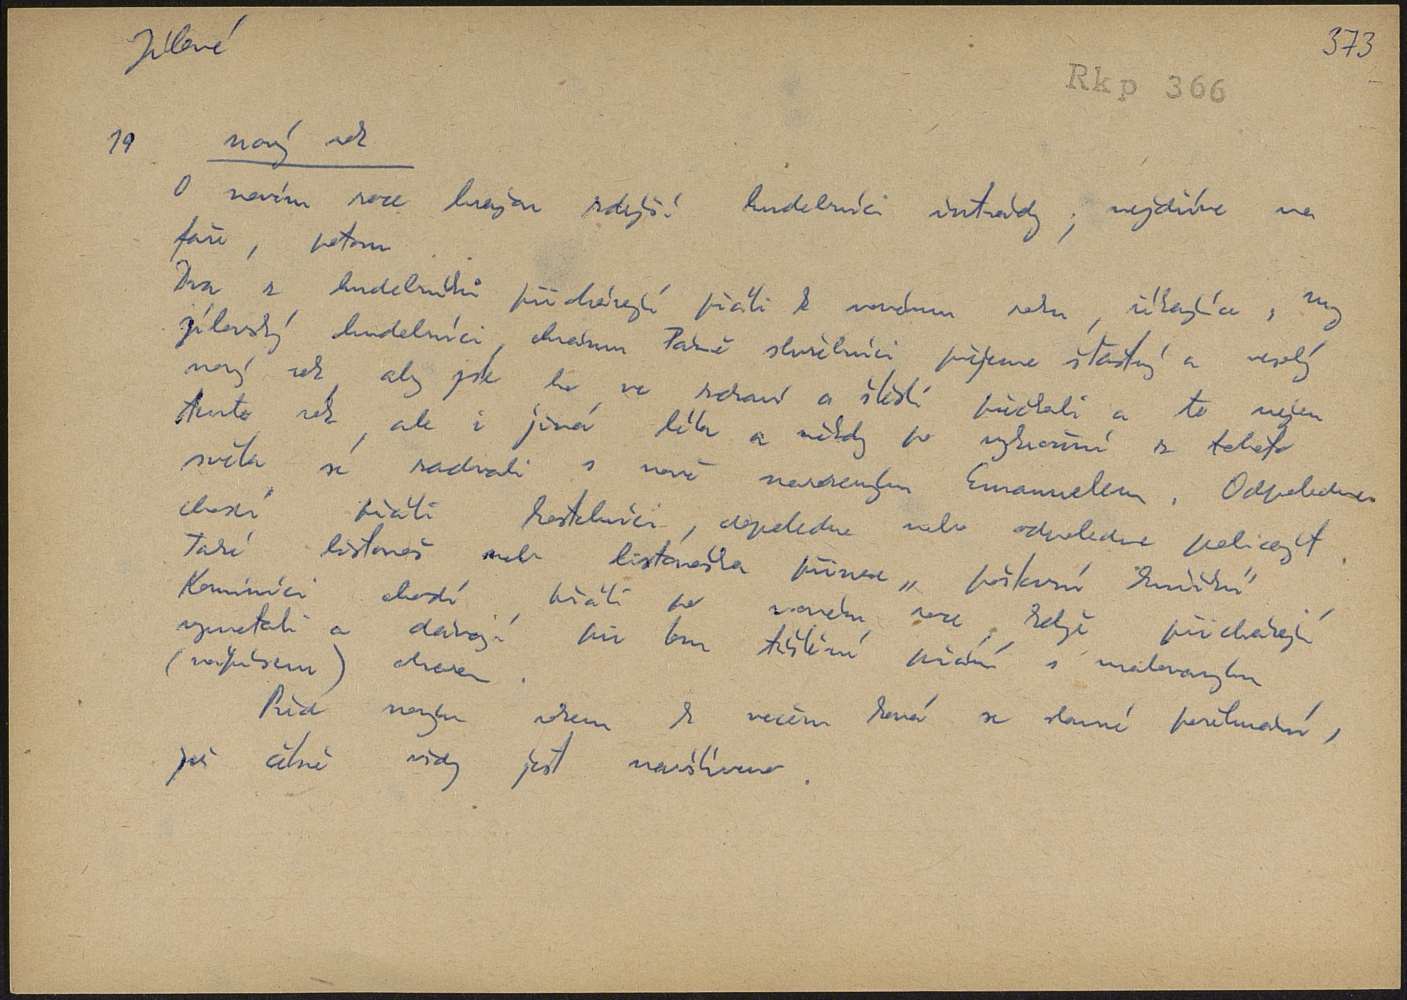 Jílové
373
Rkp 366
19 nový rok
O novém roce hrajou zdejší hudebníci intrády, nejdříve na
faře, potom
Dva z hudebníků přicházejí přáti k novému roku, říkajíce, my
jílovský hudebníci, chrámu Páně služebníci přejeme šťastný a veselý
nový rok, aby jste ho ve zdraví a štěstí přečkali a to nejen
tento rok, ale i jiná léta a někdy po vykročení z tohoto
světa se radovali s nově narozeným Emanuelem. Odpoledne
chodí přáti kostelníci, dopoledne nebo odpoledne policajt.
Také listonoš nebo listonoška přinese „poštovní knížku"
Kominíci chodí přáti po novém roce, když přicházejí
vymetati a dávají při tom tištěné přání s malovaným
(nápisem)
Před novým rokem k večeru koná se slavné požehnání,
jež četně vždy jest navštíveno.